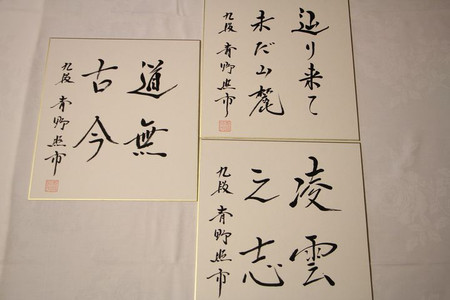 道無
古今
九段 青野照市
辿り来て
未だ山麓
九段 青野照市
凌雲
之志
九段 青野照市